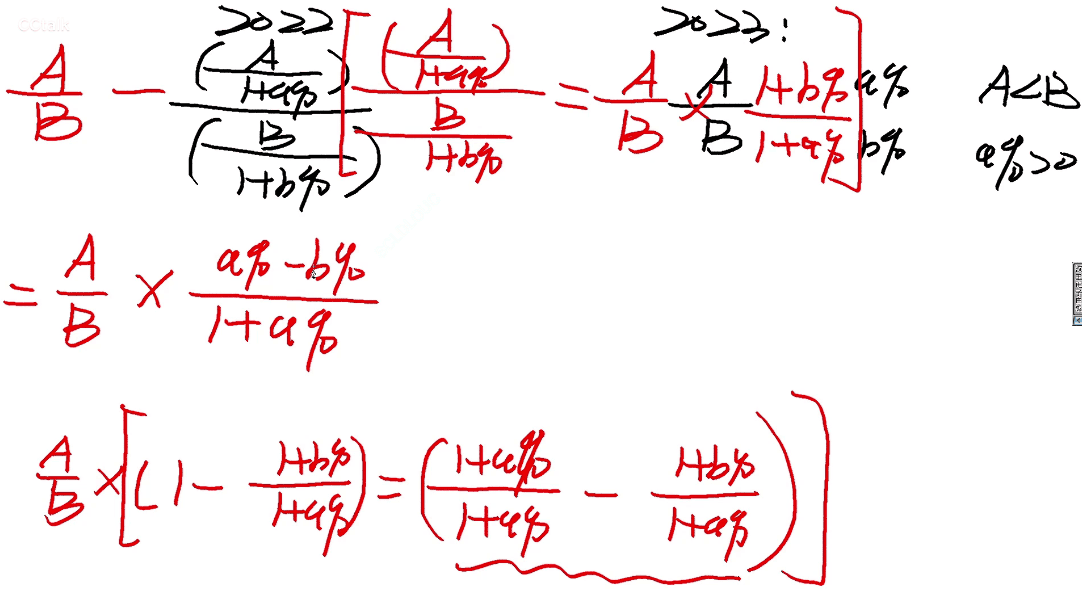 CCtalk
2022 2023:
A/B - (A/(1+a%))/(B/(1+b%)) [(A/(1+a%))/(B/(1+b%)) = A/B × (1+b%)/(1+a%)] A/B a% b% A<B a%>0
= A/B × (a%-b%)/(1+a%)
A/B × [(1 - (1+b%)/(1+a%)) = ((1+a%)/(1+a%) - (1+b%)/(1+a%))]